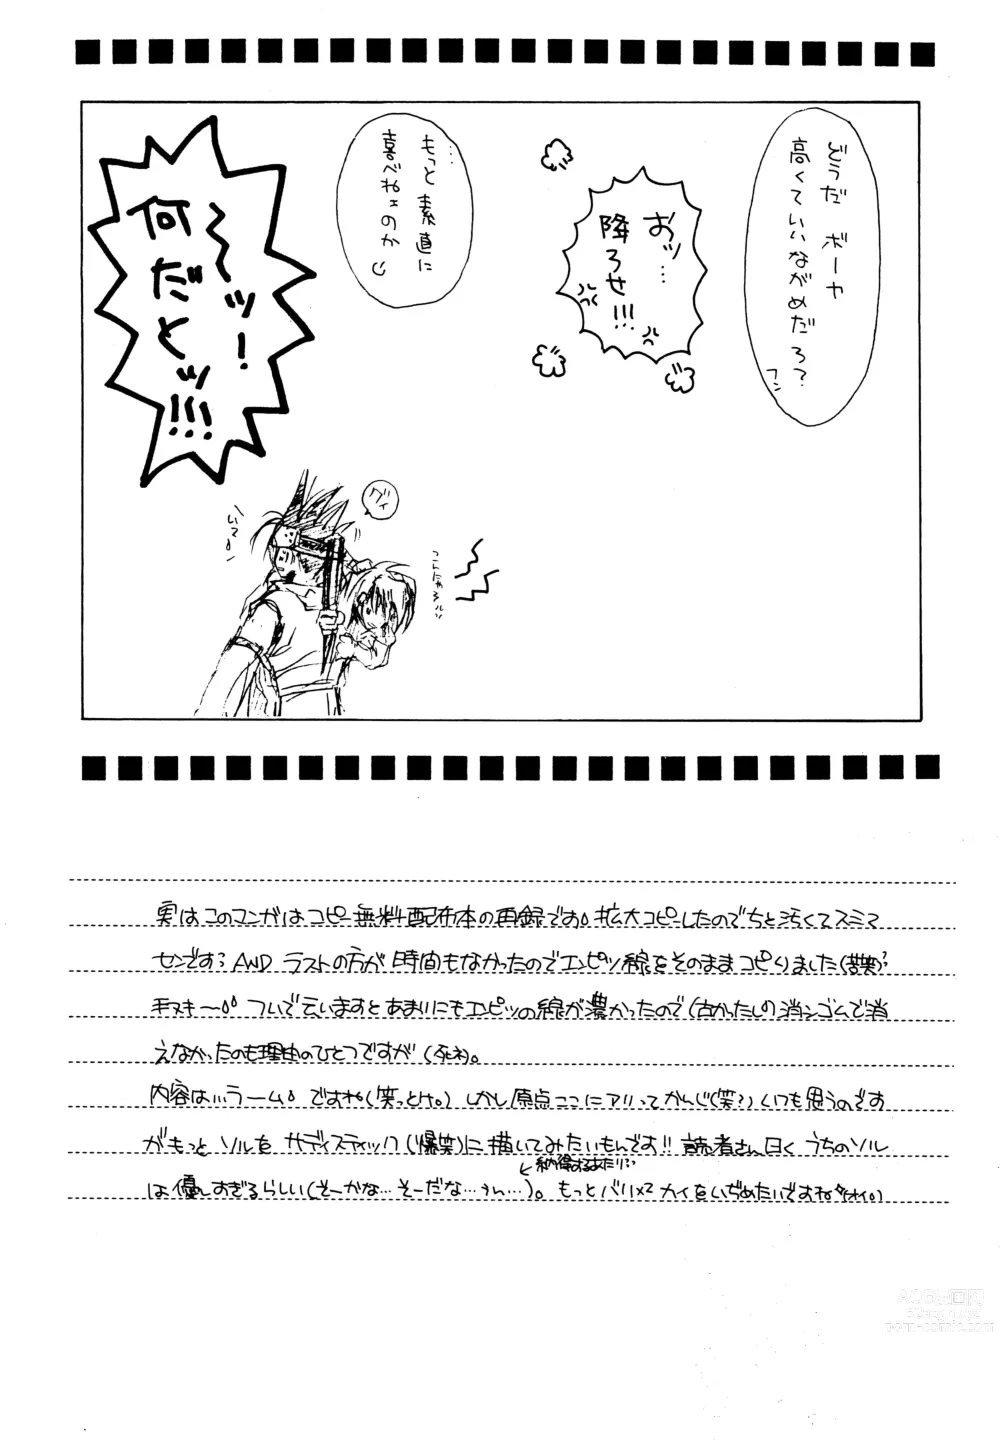 どうだ ボーヤ
高くていいながめだろ?
フン
おッ…
降ろせ!!!
…もっと素直に
喜べねェのか
〜〜ッ!
何だとッ!!!
グイ
いてっ
こんにゃろッ
実はこのマンガはコピー無料配布本の再録です。拡大コピーしたのでちと汚くてスミマ
センです? AND ラストの方が時間もなかったのでエンピツ線をそのままコピりました(苦笑)?
手ヌキー。ついで云いますとあまりにもエンピツの線が濃かったので(古かったし)消シゴムで消
えなかったのも理由のひとつですが(死ネ)。
内容は…ラーム。ですね(笑っとけ。)しかし原点ここにアリってかんじ(笑?)いつも思うのです
がもっとソルをサディスティック(爆笑)に描いてみたいもんです!!読者さん曰くうちのソル
は優しすぎるらしい(そーかな…そーだな…うん…)。もっとバリバリカイをいぢめたいですね(オイ。)
納得するあたり…
ACG出画网
52acgzy.xyz
porn-comic.com